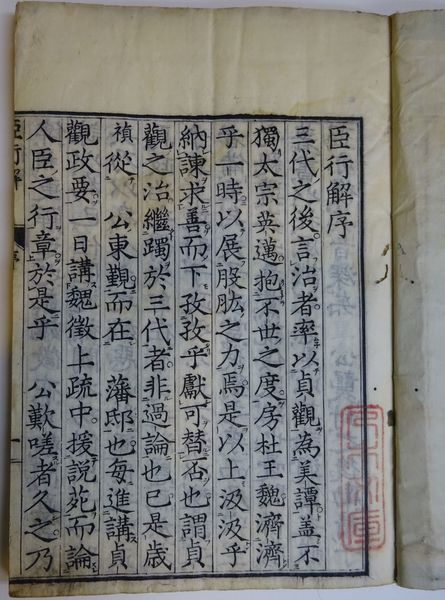 臣行解序
三代之後言治者率以貞觀為美譚盖不
獨太宗英邁抱不世之度房杜王魏濟濟
乎一時以展股肱之力焉是以上汲汲乎
納諫求善而下孜孜乎獻可替否也謂貞
觀之治繼躅於三代者非過論也已是歲
禎從 公東觀而在 藩邸也每進講貞
觀政要一日講魏徵上疏中援說苑而論
人臣之行章於是乎 公歎嗟者久之乃
臣行解
序
一